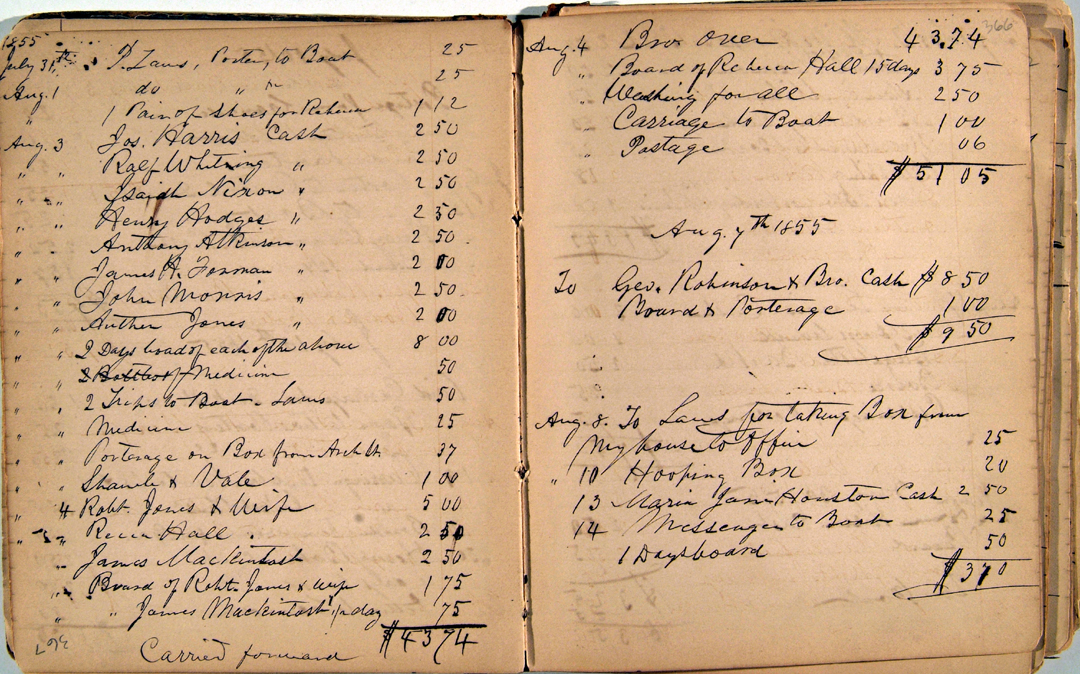 1855
July 31th T. Laws, Porter, to Boat 25
Aug. 1 do " " 25
" 1 Pair of Shoes for Rebecca 1 12
Aug. 3 Jos. Harris Cash 2 50
" " Ralf Whiting " 2 50
" " Isaiah Nixon " 2 50
" " Henry Hodges " 2 50
" " Anthony Atkinson " 2 50
" " James H. Forman " 2 00
" " John Morris " 2 50
" " Auther Jones " 2 00
" " 2 Days board of each of the above 8 00
" " 2 Bottles of Medicine 50
" " 2 Trips to Boat - Laws 50
" " Medicine 25
" " Porterage on Box from Arch St 37
" " Shawls & Vale 1 00
" 4 Robt. Jones & Wife 5 00
" " Hall 2 50
" James Mackintosh 2 50
" Board of Robt. Jones & wife 1 75
" " James Mackintosh 1/2 day 75
$43 74
Carried forward
367
366
Aug. 4 Bro. over 43.74
" Board of Rebecca Hall 15 days 3 75
" Washing for all 2 50
" Carriage to Boat 1 00
" Postage 06
$51 05
Aug. 7th 1855
To Geo. Robinson & Bro. Cash $8 50
Board & Porterage 1 00
$9 50
Aug. 8. To Laws for taking Box from
My house to Office 25
" 10 Hooping Box 20
13 Maria Jane Houston Cash 2 50
14 Messenger to Boat 25
1 Days board 50
$3 70